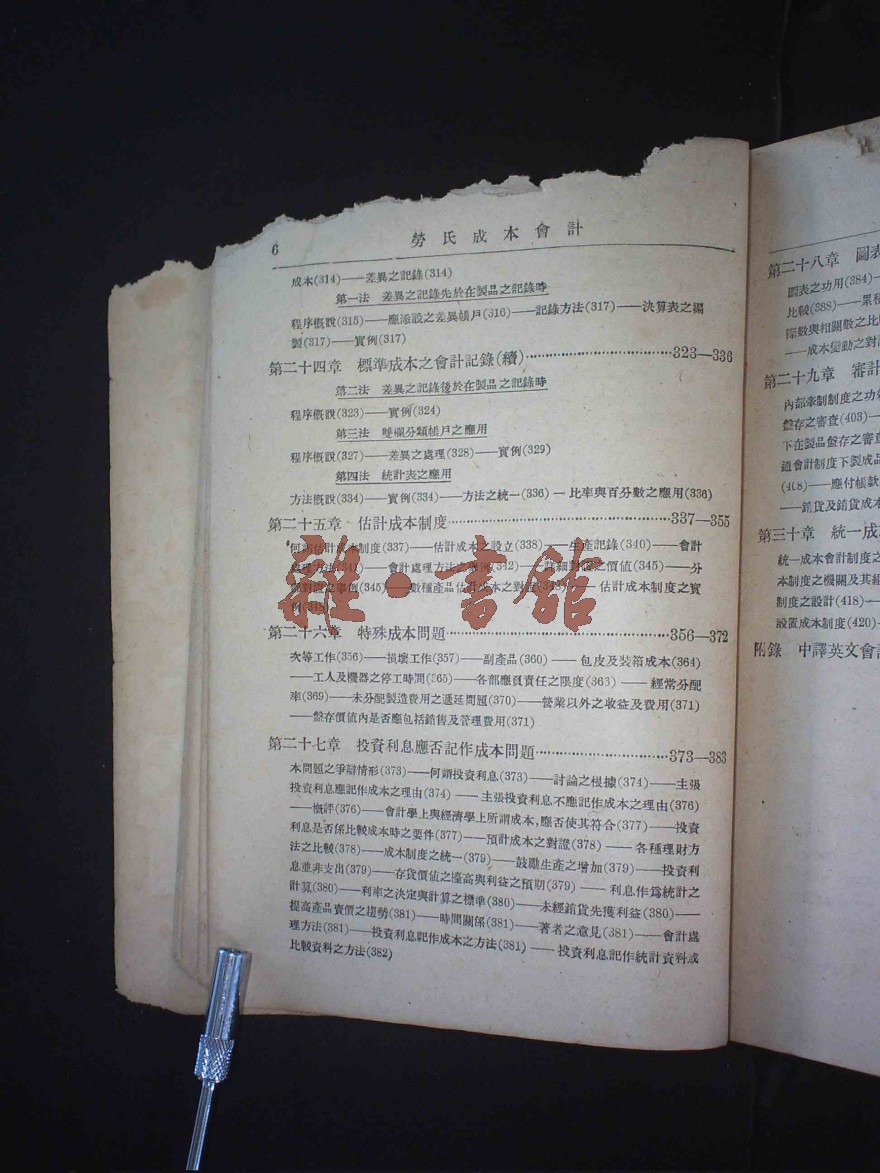 6 勞氏成本會計
成本(314)——差異之記錄(314)
第一法 差異之記錄先於在製品之記錄時
程序概說(315)——應添設之差異帳戶(316)——記錄方法(317)——決算表之編
製(317)——實例(317)
第二十四章 標準成本之會計記錄(續)…………323—336
第二法 差異之記錄後於在製品之記錄時
程序概說(323)——實例(324)
第三法 雙欄分類帳戶之應用
程序概說(327)——差異之處理(328)——實例(329)
第四法 統計表之應用
方法概說(334)——實例(334)——方法之統一(336)—比率與百分數之應用(336)
第二十五章 估計成本制度…………337—355
何謂估計成本制度(337)——估計成本之設立(338)——生產記錄(340)——會計
處理方法(341)——會計處理方法之舉例(342)——詳細對證之價值(345)——分
例(345)——數種產品估計成本之對證(348)——估計成本制度之實
第二十六章 特殊成本問題…………356—372
次等工作(356)——損壞工作(357)——副產品(360)——包皮及裝箱成本(364)
——工人及機器之停工時間(365)——各部應負責任之限度(363)——經常分配
率(369)——未分配製造費用之遞延問題(370)——營業以外之收益及費用(371)
——盤存價值內是否應包括銷售及管理費用(371)
第二十七章 投資利息應否記作成本問題…………373—383
本問題之爭辯情形(373)——何謂投資利息(373)——討論之根據(374)——主張
投資利息應記作成本之理由(374)——主張投資利息不應記作成本之理由(376)
——概評(376)——會計學上與經濟學上所謂成本，應否使其符合(377)——投資
利息是否係比較成本時之要件(377)——預計成本之對證(378)——各種理財方
法之比較(378)——成本制度之統一(379)——鼓勵生產之增加(379)——投資利
息並非支出(379)——存貨價值之擡高與利益之預期(379)——利息作爲統計之
計算(380)——利率之決定與計算之標準(380)——未經銷貨先獲利益(380)——
提高產品賣價之趨勢(381)——時間關係(381)——著者之意見(381)——會計處
理方法(381)——投資利息記作成本之方法(381)——投資利息記作統計資料或
比較資料之方法(382)
雜·書館
第二十八章 圖表
圖表之功用(384)—
比較(388)——累積
際數與相關數之比
——成本變動之對
第二十九章 審計
內部牽制制度之功
盤存之審查(403)—
下在製品盤存之審
通會計制度下製成品
(408)——應付帳款
——銷貨及銷貨成本
第三十章 統一成
統一成本會計制度之
本制度之機關及其組
制度之設計(418)——
設置成本制度(420)—
附錄 中譯英文會計